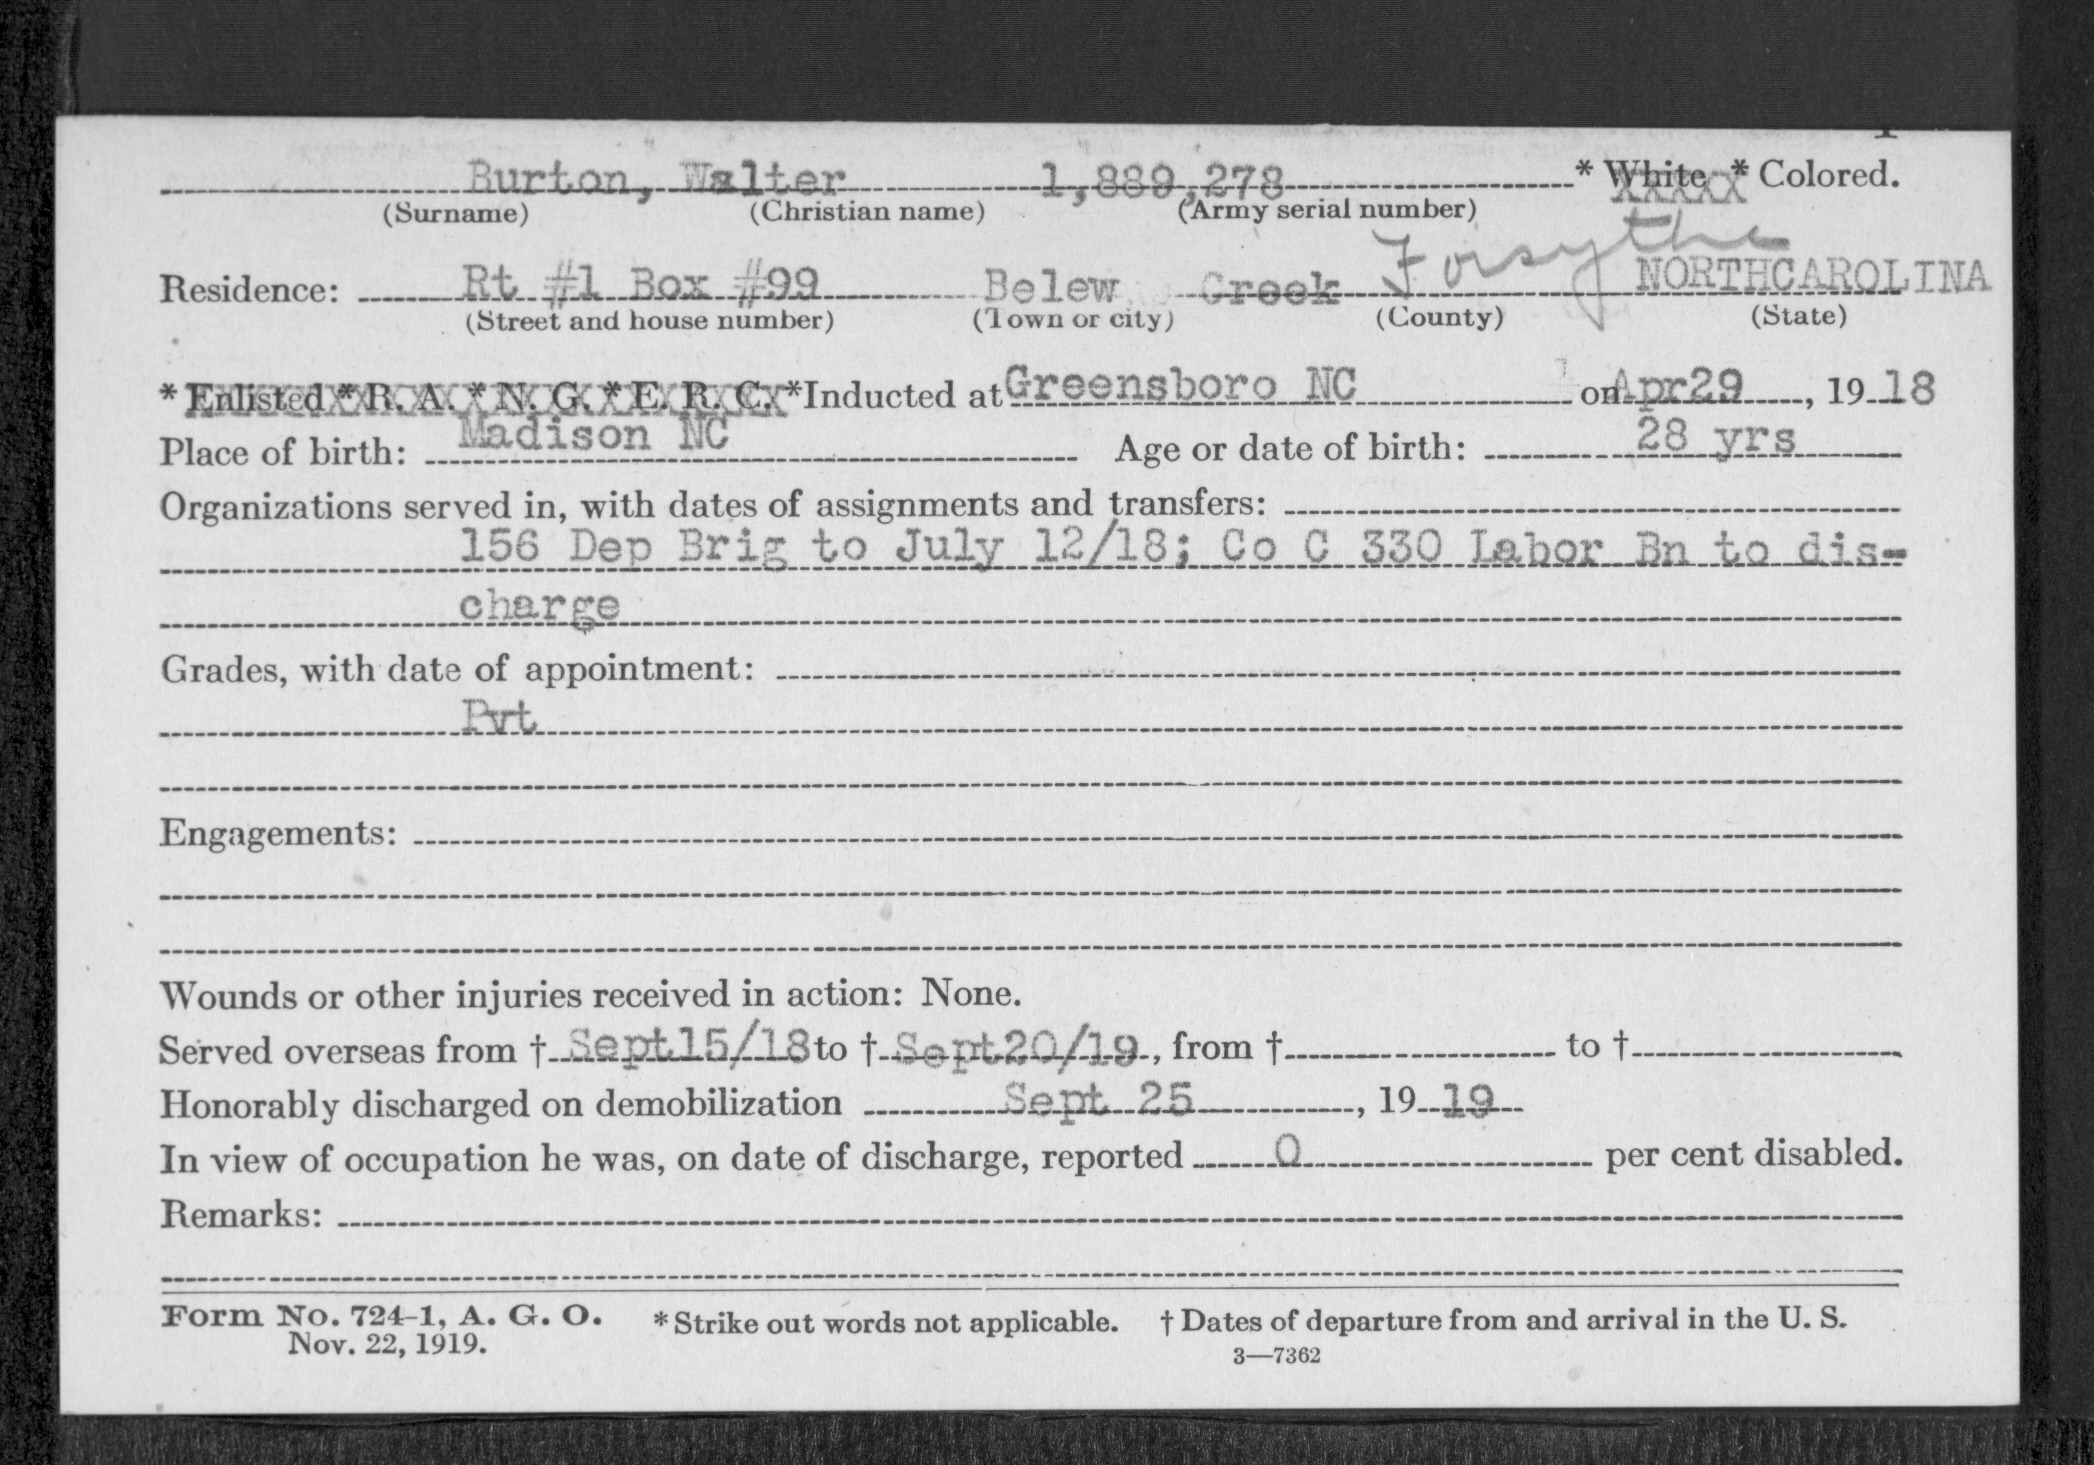 Burton, Walter 1,889,278 * White * Colored.
(Surname) (Christian name) (Army serial number)
Forsythe
Residence: Rt #1 Box #99 Belew Creek NORTHCAROLINA
(Street and house number) (Town or city) (County) (State)
* Enlisted * R. A. * N. G. * E. R. C. *Inducted at Greensboro NC on Apr29, 19 18
Place of birth: Madison NC Age or date of birth: 28 yrs
Organizations served in, with dates of assignments and transfers:
156 Dep Brig to July 12/18; Co C 330 Labor Bn to dis-
charge
Grades, with date of appointment:
Pvt
Engagements:
Wounds or other injuries received in action: None.
Served overseas from † Sept15/18 to † Sept20/19, from † to †
Honorably discharged on demobilization Sept 25, 19 19
In view of occupation he was, on date of discharge, reported 0 per cent disabled.
Remarks:
Form No. 724-1, A. G. O. * Strike out words not applicable. † Dates of departure from and arrival in the U. S.
Nov. 22, 1919. 3—7362